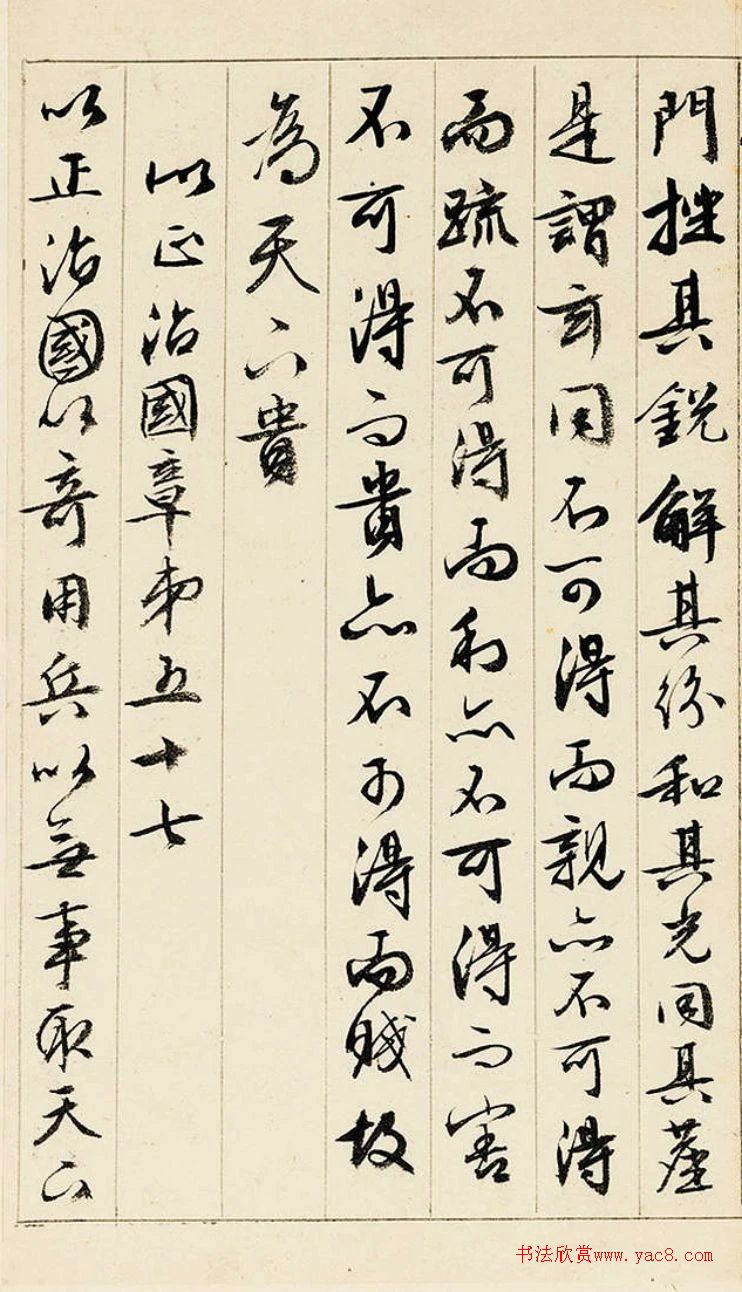 門挫其銳解其紛和其光同其塵
是謂玄同不可得而親亦不可得
而疏不可得而利亦不可得而害
不可得而貴亦不可得而賤故
為天下貴
以正治國章第五十七
以正治國以奇用兵以無事取天下
书法欣赏www.yac8.com